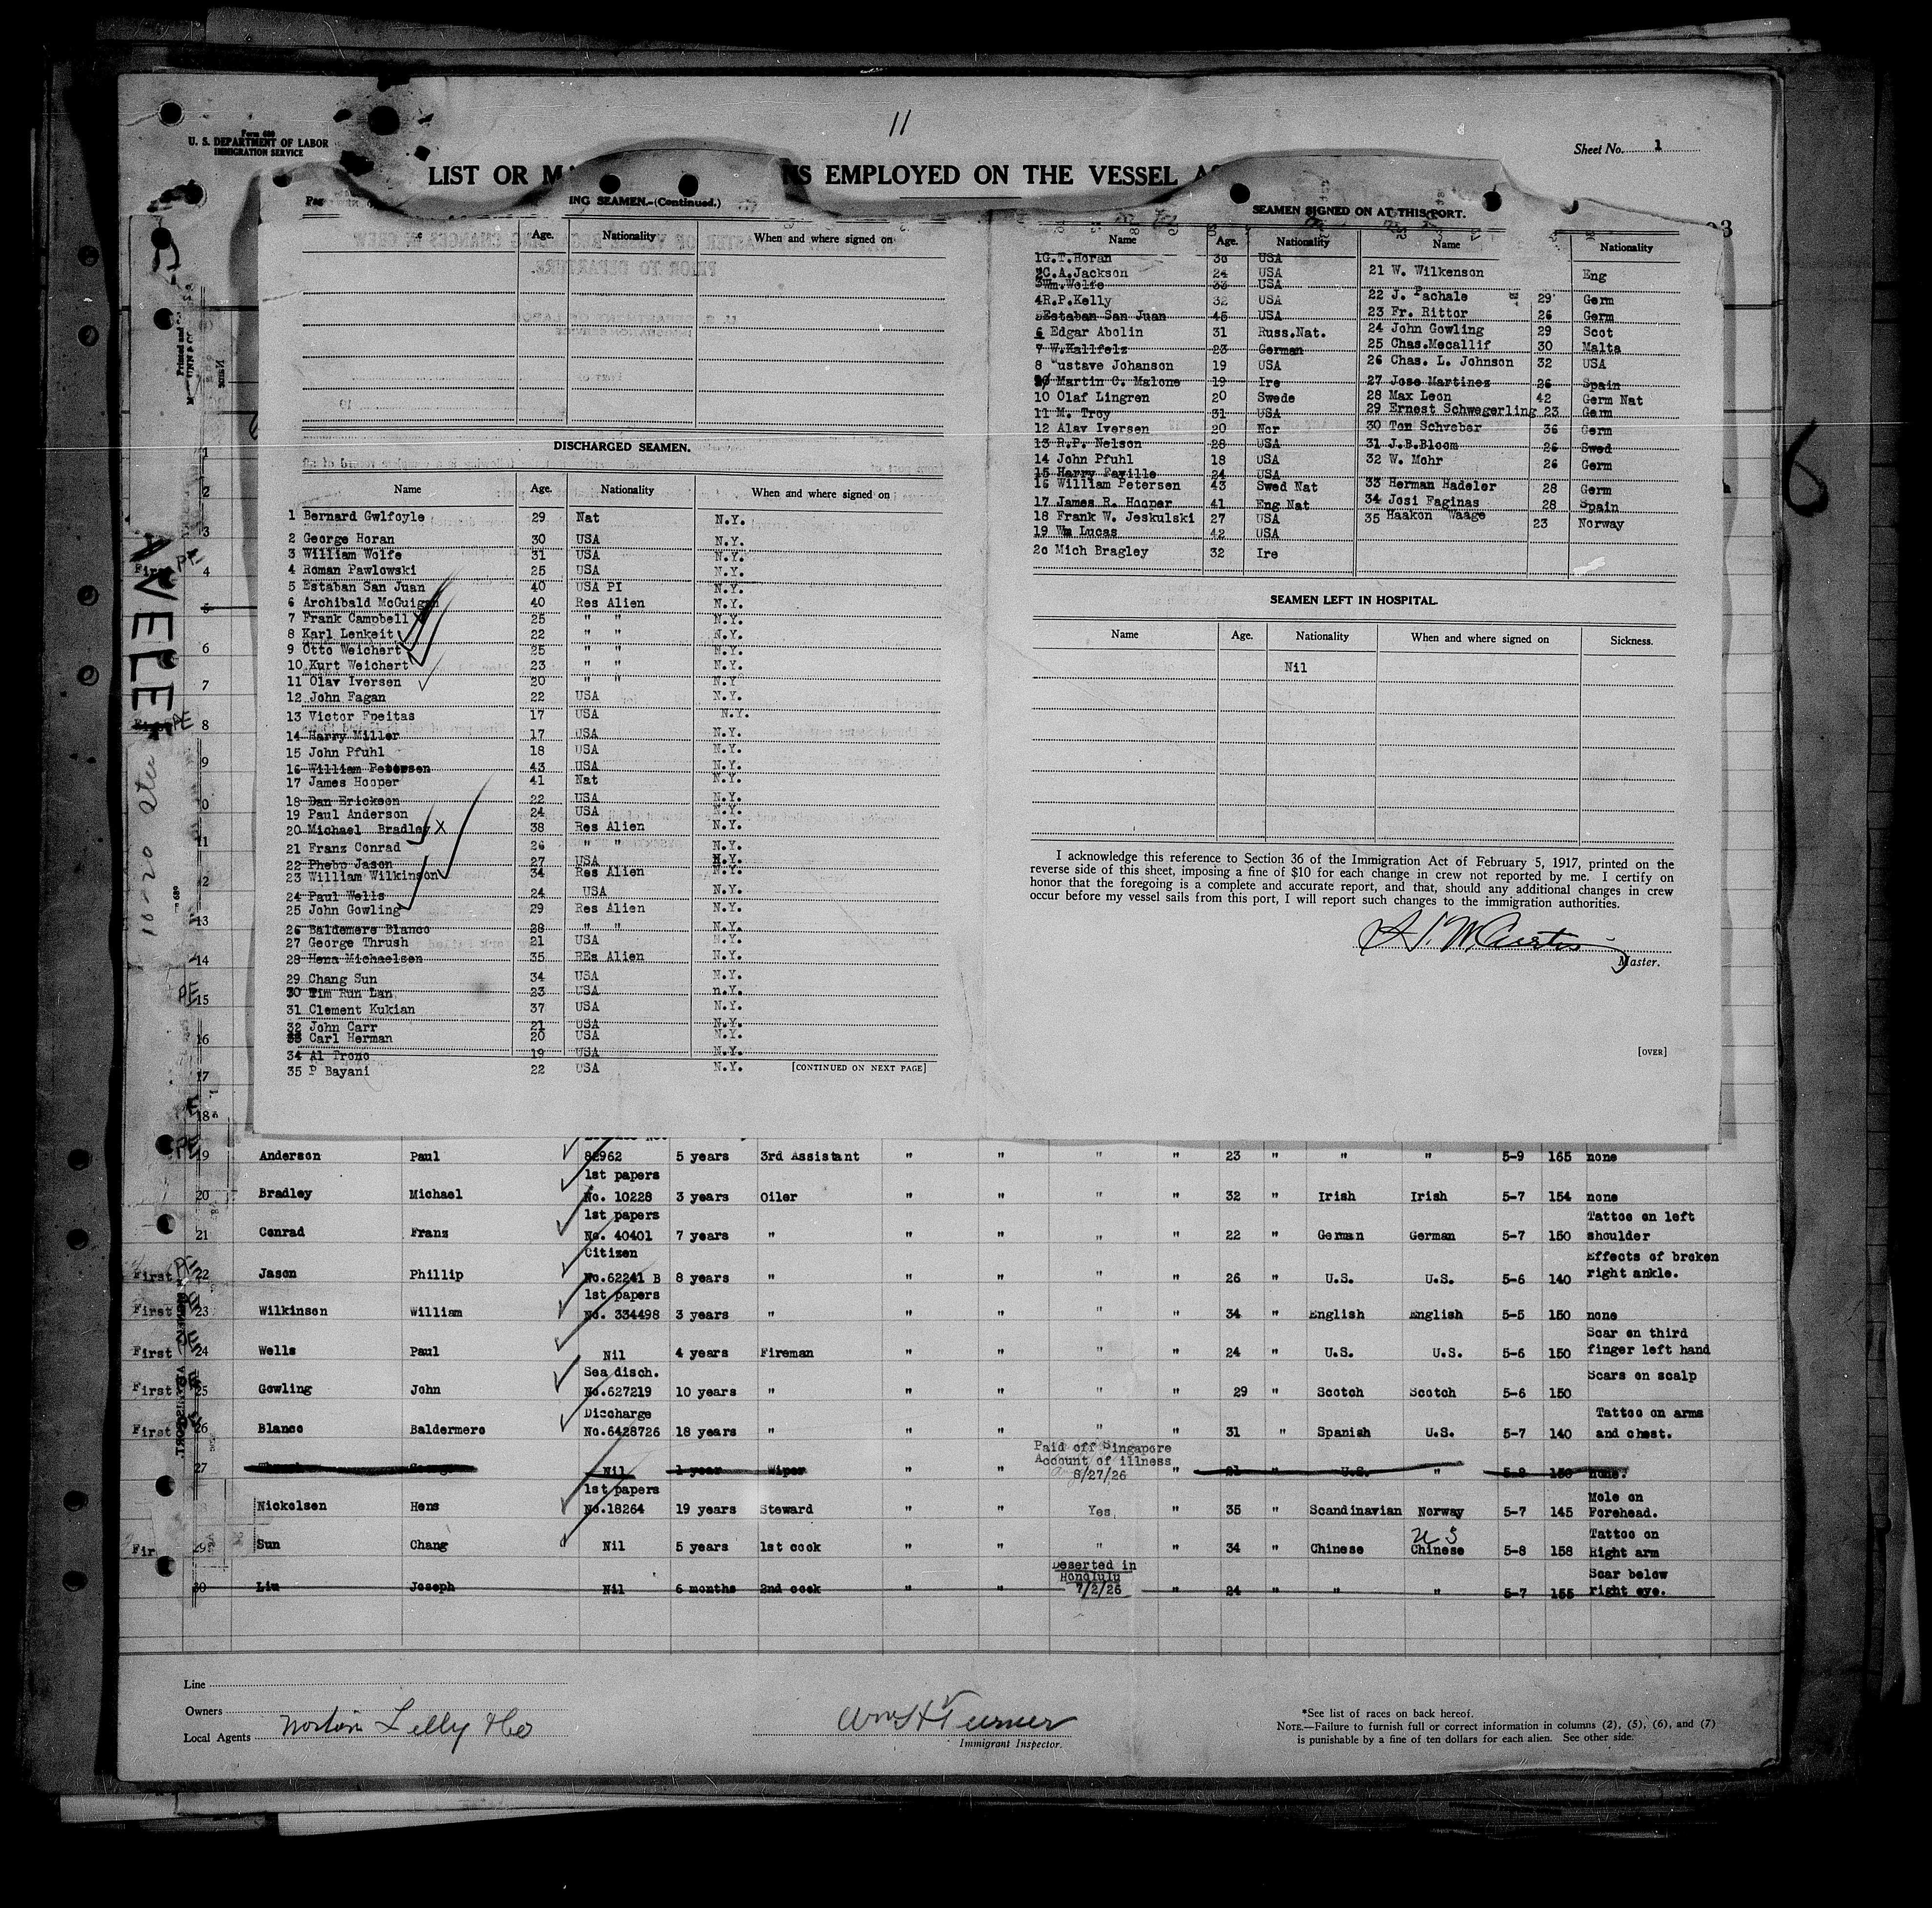 11
Form 680
U. S. DEPARTMENT OF LABOR
IMMIGRATION SERVICE
Sheet No. 1
LIST OR EMPLOYED ON THE VESSEL
ING SEAMEN.-(Continued.)
Age. Nationality When and where signed on
DISCHARGED SEAMEN.
Name Age. Nationality When and where signed on
1 Bernard Gwlfoyle 29 Nat N.Y.
2 George Horan 30 USA N.Y.
3 William Wolfe 31 USA N.Y.
4 Roman Pawlowski 25 USA N.Y.
5 Estaban San Juan 40 USA PI N.Y.
6 Archibald McGuigan 40 Res Alien N.Y.
7 Frank Campbell 25 " " N.Y.
8 Karl Lenkeit 22 " " N.Y.
9 Otto Weichert 25 " " N.Y.
10 Kurt Weichert 23 " " N.Y.
11 Olav Iversen 20 " " N.Y
12 John Fagan 22 USA N.Y.
13 Victor Freitas 17 USA N.Y.
14 Harry Miller 17 USA N.Y.
15 John Pfuhl 18 USA N.Y.
16 William Petersen 43 USA N.Y.
17 James Hooper 41 Nat N.Y.
18 Dan Erickson 22 USA N.Y.
19 Paul Anderson 24 USA N.Y.
20 Michael Bradley X 38 Res Alien N.Y.
21 Franz Conrad 26 " " N.Y.
22 Phebo Jason 27 USA N.Y.
23 William Wilkinson 34 Res Alien N.Y.
24 Paul Wells 24 USA N.Y.
25 John Gowling 29 Res Alien N.Y.
26 Baldemere Blanco 28 " " N.Y.
27 George Thrush 21 USA N.Y.
28 Hena Michaelsen 35 REs Alien N.Y.
29 Chang Sun 34 USA N.Y.
30 Tim Run Lan 23 USA n.Y.
31 Clement Kukian 37 USA N.Y.
32 John Carr 21 USA N.Y.
33 Carl Herman 20 USA N.Y.
34 Al Trono 19 USA N.Y.
35 P Bayani 22 USA N.Y.
[CONTINUED ON NEXT PAGE]
SEAMEN SIGNED ON AT THIS PORT.
Name Age. Nationality Name Nationality
1 G.T.Horan 30 USA
2 C.A.Jackson 24 USA
3 Wm.Wolfe 33 USA
4 R.P.Kelly 32 USA
5 Estaban San Juan 45 USA
6 Edgar Abolin 31 Russ.Nat.
7 W.Kallfelz 23 German
8 ustave Johanson 19 USA
Martin C. Malone 19 Ire
10 Olaf Lingren 20 Swede
11 M. Troy 31 USA
12 Alav Iversen 20 Nor
13 R.P. Nelson 28 USA
14 John Pfuhl 18 USA
15 Harry Faville 24 USA
16 William Petersen 43 Swed Nat
17 James R. Hooper 41 Eng Nat
18 Frank W. Jeskulski 27 USA
19 Wm Lucas 42 USA
20 Mich Bragley 32 Ire
21 W. Wilkenson Eng
22 J. Pachale 29 Germ
23 Fr. Rittor 26 Germ
24 John Gowling 29 Scot
25 Chas.Mecallif 30 Malta
26 Chas. L. Johnson 32 USA
27 Jose Martinez 26 Spain
28 Max Leon 42 Germ Nat
29 Ernest Schwegerling 23 Germ
30 Ton Schveber 36 Germ
31 J.B.Bloom 26 Swed
32 W. Mohr 26 Germ
33 Herman Hadeler 28 Germ
34 Josi Faginas 28 Spain
35 Haakon Waage 23 Norway
SEAMEN LEFT IN HOSPITAL.
Name Age. Nationality When and where signed on Sickness.
Nil
I acknowledge this reference to Section 36 of the Immigration Act of February 5, 1917, printed on the
reverse side of this sheet, imposing a fine of $10 for each change in crew not reported by me. I certify on
honor that the foregoing is a complete and accurate report, and that, should any additional changes in crew
occur before my vessel sails from this port, I will report such changes to the immigration authorities.
Master.
[OVER]
6
19 Anderson Paul 82962 5 years 3rd Assistant " " " " 23 " " " 5-9 165 none
1st papers
20 Bradley Michael No. 10228 3 years Oiler " " " " 32 " Irish Irish 5-7 154 none
1st papers Tattoo on left
21 Conrad Franz No. 40401 7 years " " " " " 22 " German German 5-7 150 shoulder
Citizen Effects of broken
First PE 22 Jason Phillip No.62241 B 8 years " " " " " 26 " U.S. U.S. 5-6 140 right ankle.
1st papers
First 23 Wilkinson William No. 334498 3 years " " " " " 34 " English English 5-5 150 none
Scar on third
First 24 Wells Paul Nil 4 years Fireman " " " " 24 " U.S. U.S. 5-6 150 finger left hand
Sea disch. Scars on scalp
First 25 Gowling John No.627219 10 years " " " " " 29 " Scotch Scotch 5-6 150
Discharge Tattoo on arms
First 26 Blanco Baldermero No.6428726 18 years " " " " " 31 " Spanish U.S. 5-7 140 and chest.
Paid off Singapore
Account of illness
27 Nil 1 year Wiper " " 8/27/26 " 21 " U.S. " none.
1st papers Mole on
Nickelsen Hens No.18264 19 years Steward " " Yes " 35 " Scandinavian Norway 5-7 145 Forehead.
U S Tattoo on
Fir 29 Sun Chang Nil 5 years 1st cook " " " " 34 " Chinese Chinese 5-8 158 Right arm
Deserted in
Honolulu Scar below
30 Liu Joseph Nil 6 months 2nd cook " " 7/2/26 " 24 " " " 5-7 155 right eye.
Line
Owners
Local Agents Norton Lilly & Co
Wm H Turner
Immigrant Inspector.
*See list of races on back hereof.
NOTE.—Failure to furnish full or correct information in columns (2), (5), (6), and (7)
is punishable by a fine of ten dollars for each alien. See other side.